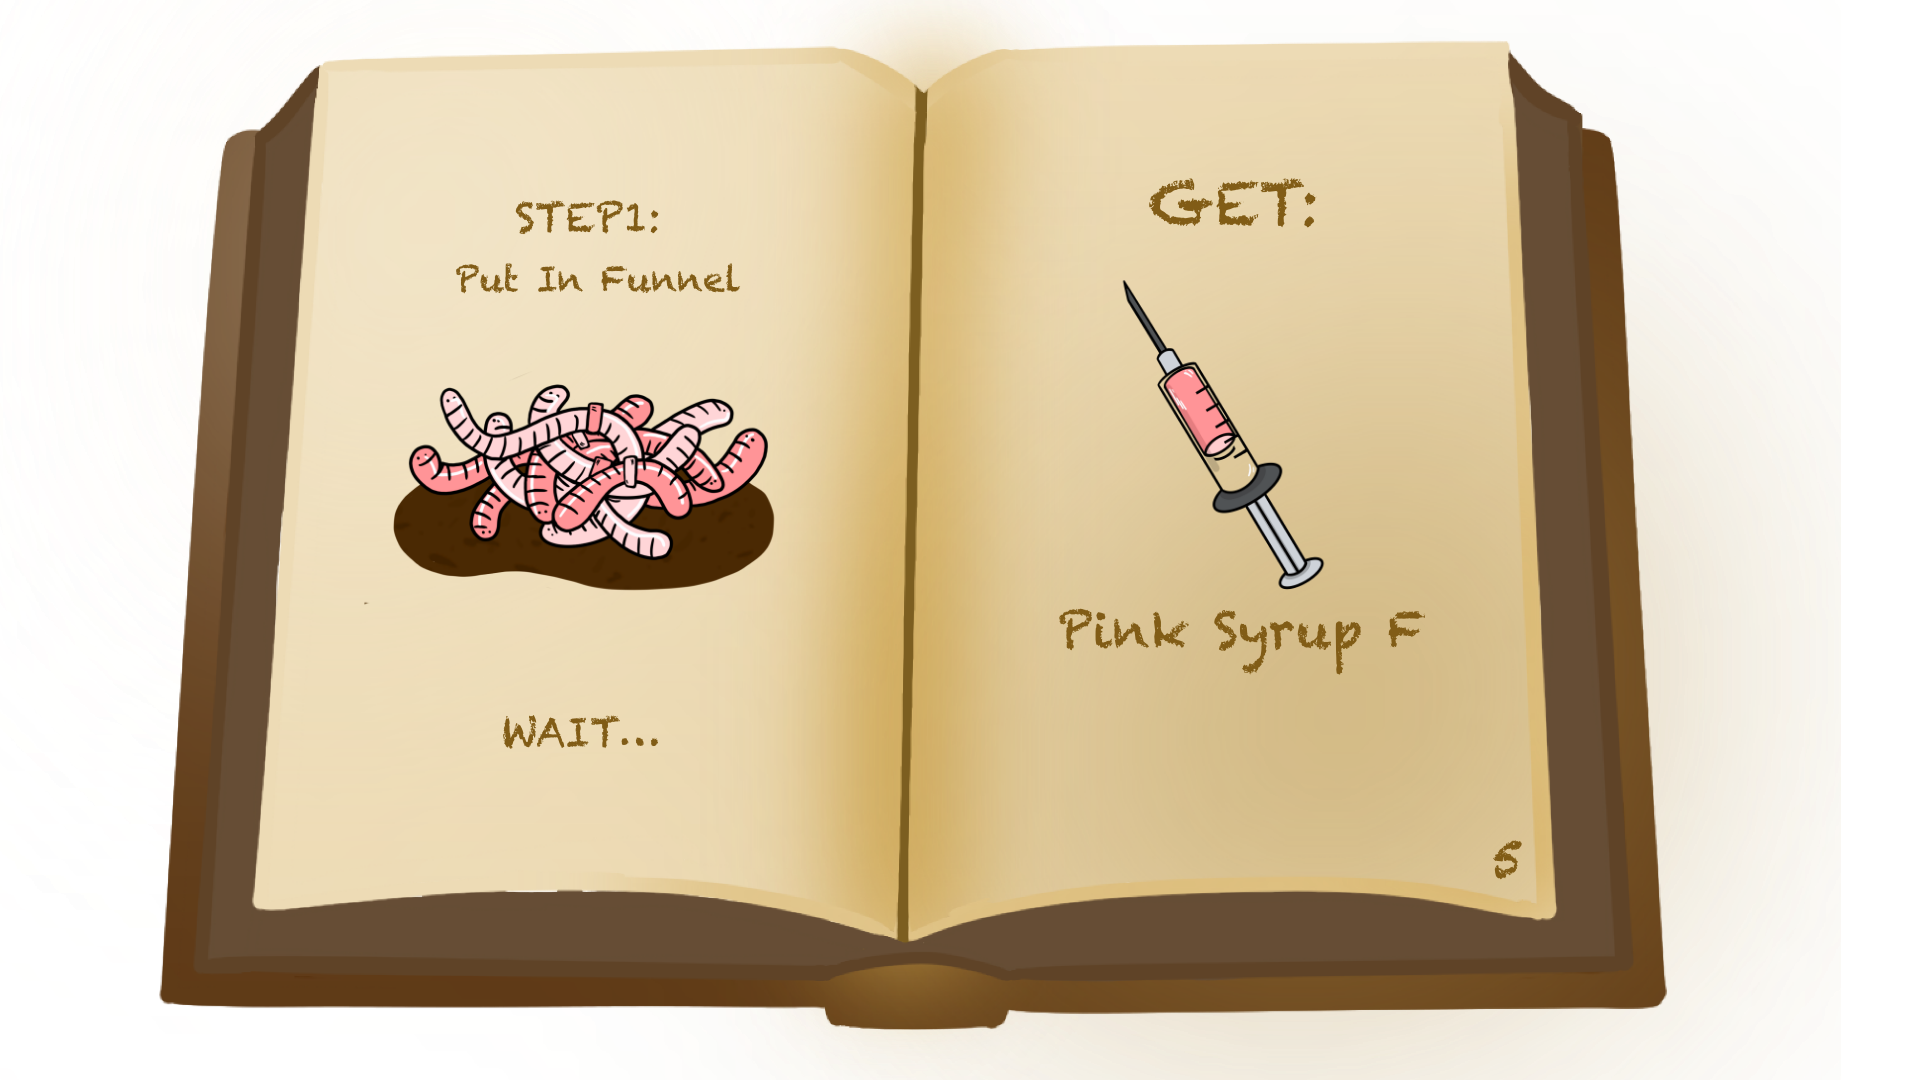 STEP1:
Put In Funnel
WAIT...
GET:
Pink Syrup F
5